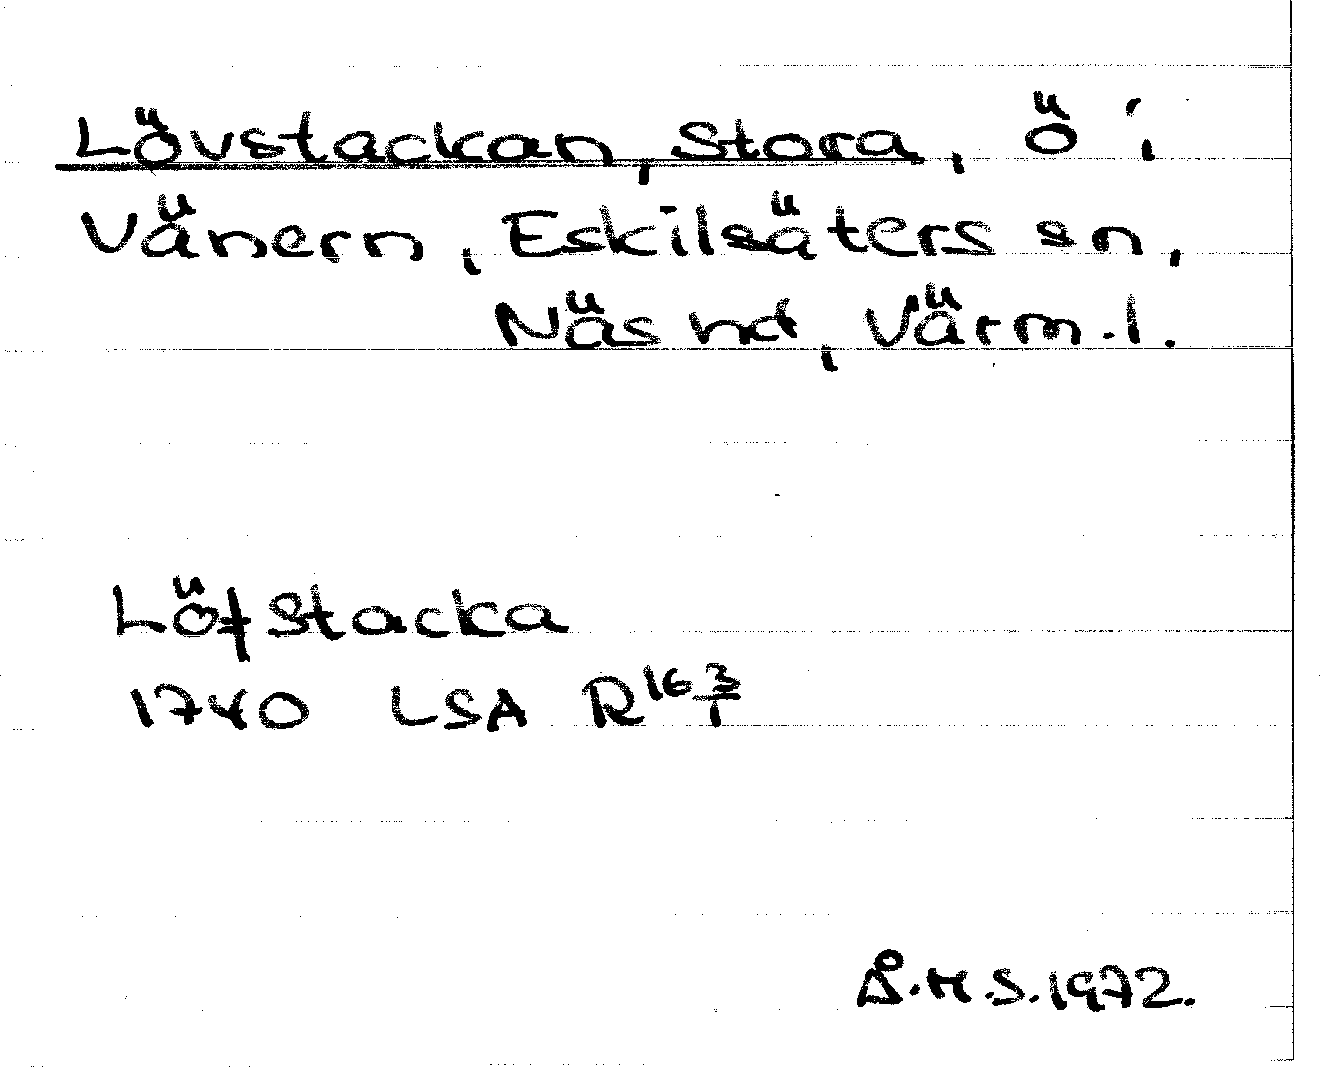 Lövstackan, Stora, ö i
Vänern, Eskilsäters sn,
Näs hd, Värm.l.
Löfstacka
1740 LSA R16 3/1
Å.H.S. 1972.